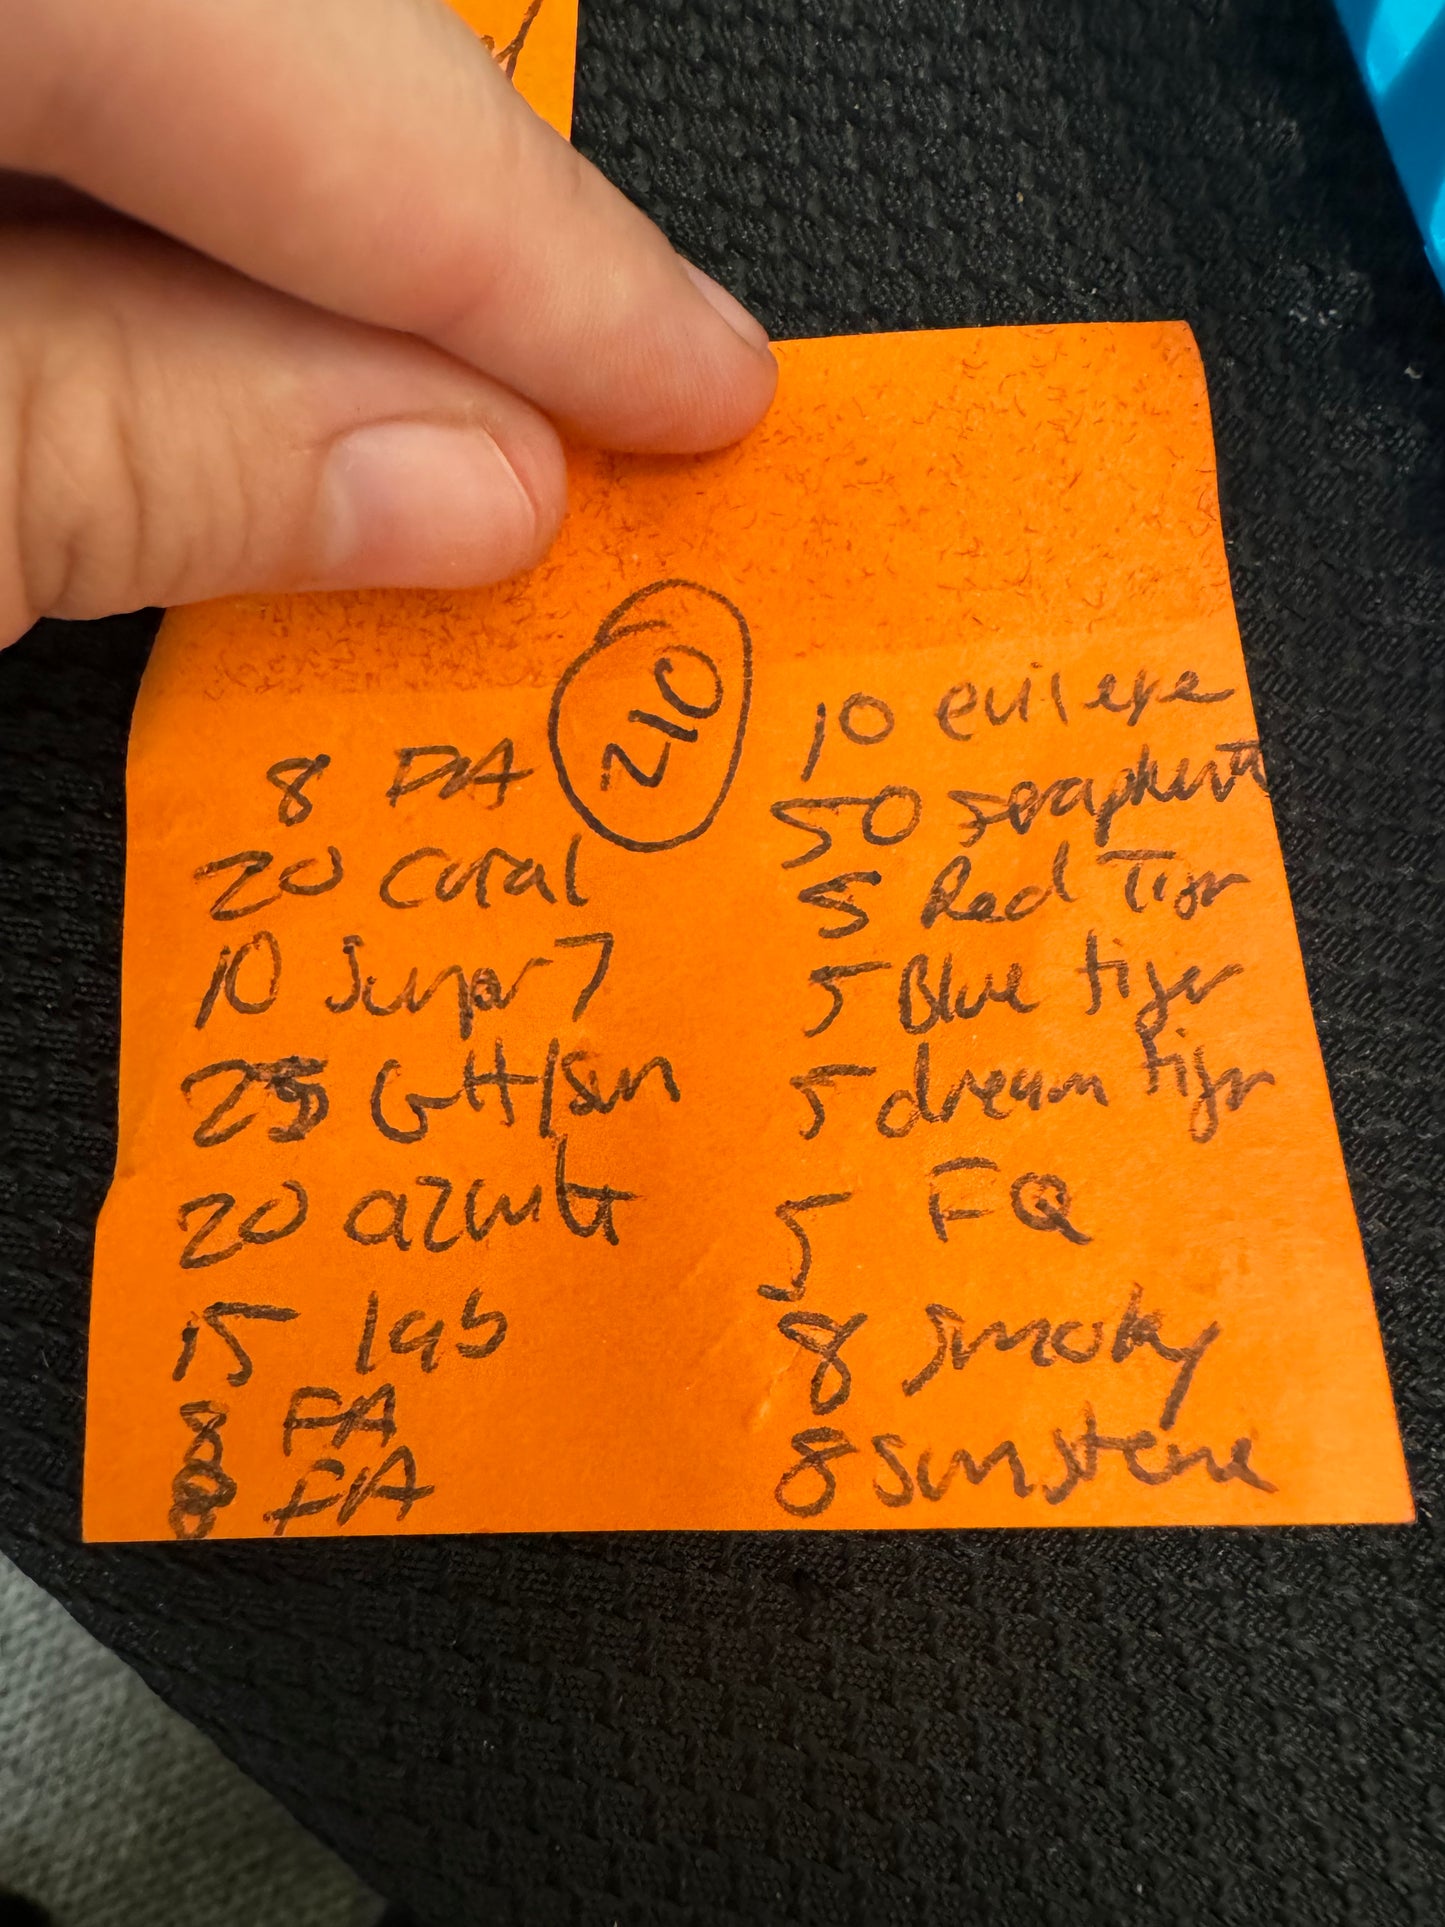 210
8 FA
20 Coral
10 Super 7
25 GH/sun
20 azurite
15 lab
8 FA
8 FA
10 evil eye
50 seraphenit
5 Red Tigr
5 Blue tiger
5 dream tigr
5 FQ
8 Smoky
8 sunstone